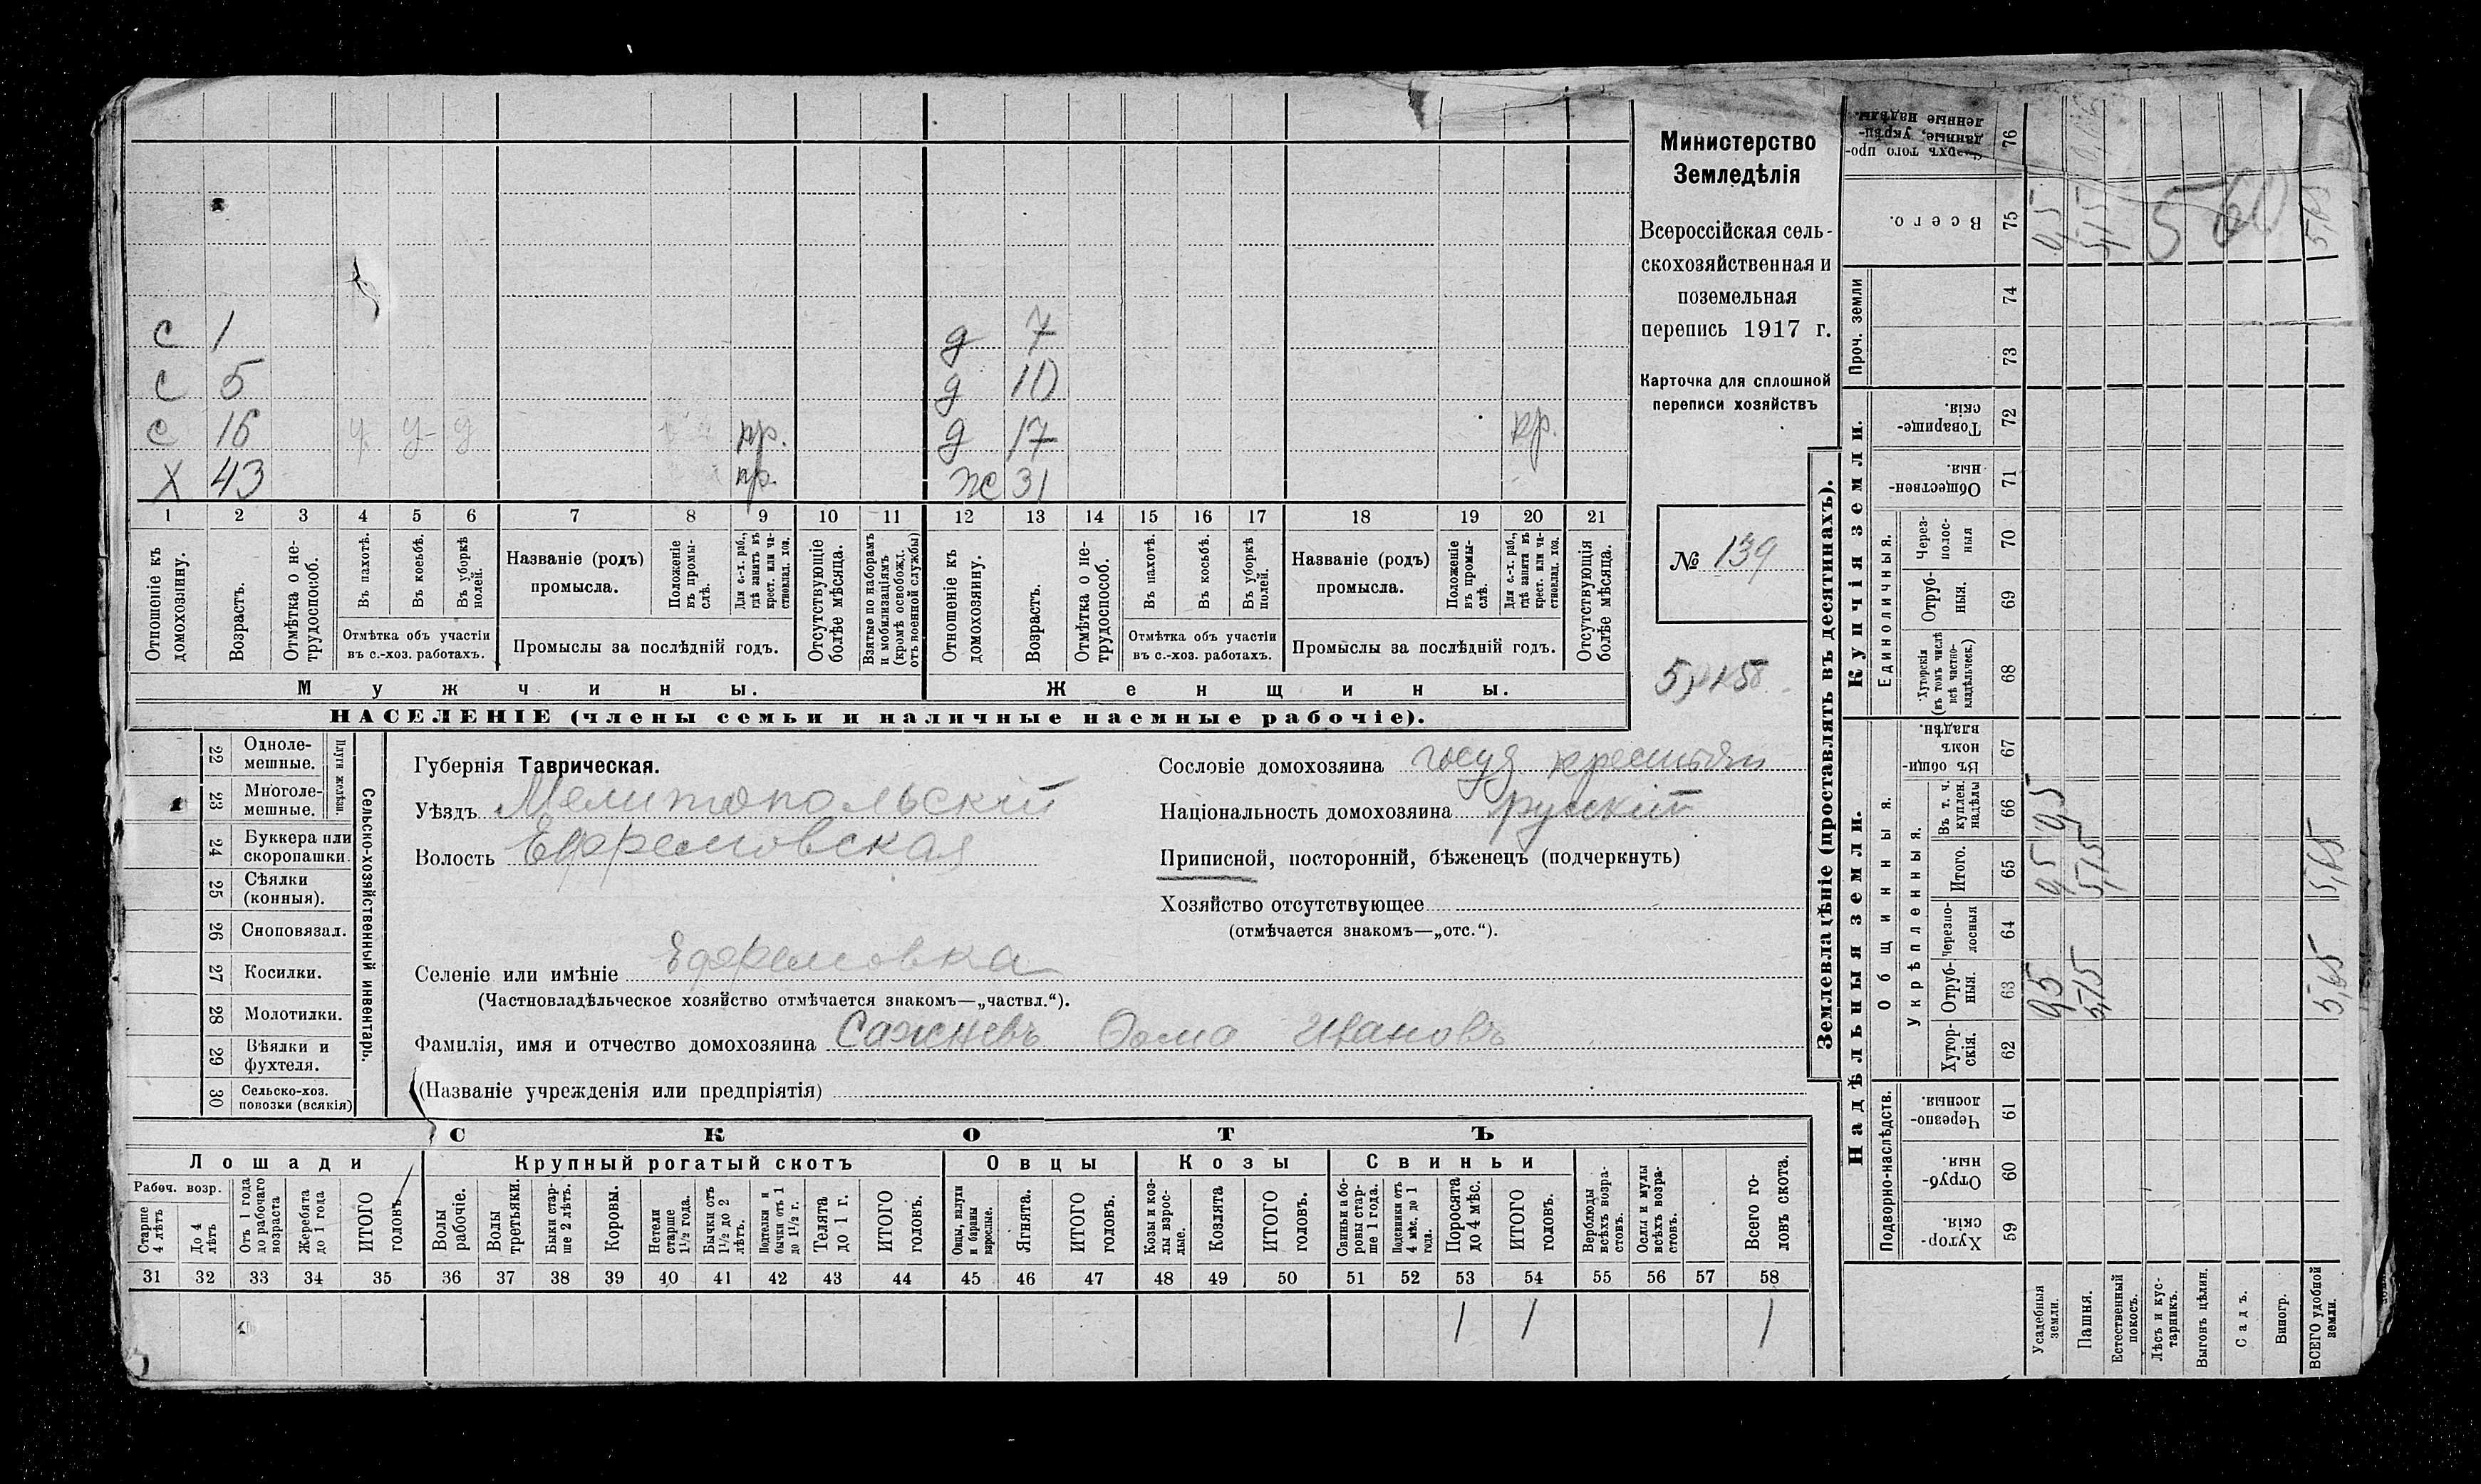 с 1 д 7
с 5 д 10
с 16 у у д кр. д 17 кр.
х 43 кр. ж 31
1 2 3 4 5 6 7 8 9 10 11 12 13 14 15 16 17 18 19 20 21
Отношеніе къ домохозяину.
Возрастъ.
Отмѣтка о не-
трудоспособ.
Въ пахотѣ.
Въ косьбѣ.
Въ уборкѣ
полей.
Отмѣтка объ участіи
въ с.-хоз. работахъ.
Названіе (родъ)
промысла.
Положеніе
въ промы-
слѣ.
Для с.-х. раб.,
гдѣ занятъ въ
крест. или ча-
стновлад. хоз.
Промыслы за послѣдній годъ.
Отсутствующіе
болѣе мѣсяца.
Взятые по наборамъ
и мобилизаціямъ
(кромѣ освобожд.
отъ военной службы)
Отношеніе къ
домохозяину.
Возрастъ.
Отмѣтка о не-
трудоспособ.
Въ пахотѣ.
Въ косьбѣ.
Въ уборкѣ
полей.
Отмѣтка объ участіи
въ с.-хоз. работахъ.
Названіе (родъ)
промысла.
Положеніе
въ промы-
слѣ.
Для с.-х. раб.,
гдѣ занята въ
крест. или ча-
стновлад. хоз.
Промыслы за послѣдній годъ.
Отсутствующія
болѣе мѣсяца.
Мужчины. Женщины.
НАСЕЛЕНІЕ (члены семьи и наличные наемные рабочіе).
Министерство
Земледѣлія
Всероссійская сель-
скохозяйственная и
поземельная
перепись 1917 г.
Карточка для сплошной
переписи хозяйствъ
№ 139
22 Одноле-
мешные.
23 Многоле-
мешные.
Плуги желѣзн.
24 Буккера или
скоропашки.
25 Сѣялки
(конныя).
26 Сноповязал.
27 Косилки.
28 Молотилки.
29 Вѣялки и
фухтеля.
30 Сельско-хоз.
повозки (всякія)
Сельско-хозяйственный инвентарь.
Губернія Таврическая.
Уѣздъ Мелитопольскій
Волость Ефремовская
Селеніе или имѣніе Ефремовка
(Частновладѣльческое хозяйство отмѣчается знакомъ—„частвл.“).
Фамилія, имя и отчество домохозяина Сажневъ Фома Ивановъ
(Названіе учрежденія или предпріятія)
Сословіе домохозяина госуд крестьян
Національность домохозяина русскій
Приписной, посторонній, бѣженецъ (подчеркнуть)
Хозяйство отсутствующее
(отмѣчается знакомъ—„отс.“).
СКОТЪ
Лошади Крупный рогатый скотъ Овцы Козы Свиньи
Рабоч. возр.
Старше
4 лѣтъ
До 4
лѣтъ
Отъ 1 года
до рабочаго
возраста
Жеребята
до 1 года
ИТОГО
головъ.
Волы
рабочіе.
Волы
третьяки.
Быки стар-
ше 2 лѣтъ.
Коровы.
Нетели
старше
1½ года.
Бычки отъ
1½ до 2
лѣтъ.
Подтелки и
бычки отъ 1
до 1½ г.
Телята
до 1 г.
ИТОГО
головъ.
Овцы, валухи
и бараны
взрослые.
Ягнята.
ИТОГО
головъ.
Козы и коз-
лы взрос-
лые.
Козлята
ИТОГО
головъ.
Свиньи и бо-
ровы стар-
ше 1 года.
Подсвинки отъ
4 мѣс. до 1
года.
Поросята
до 4 мѣс.
ИТОГО
головъ.
Верблюды
всѣхъ возра-
стовъ.
Ослы и мулы
всѣхъ возра-
стовъ.
Всего го-
ловъ скота.
31 32 33 34 35 36 37 38 39 40 41 42 43 44 45 46 47 48 49 50 51 52 53 54 55 56 57 58
1 1 1
Землевладѣніе (проставлять въ десятинахъ).
Надѣльныя земли. Купчія земли. Проч. земли
Подворно-наслѣдств.
Общинныя.
Укрѣпленныя.
Единоличныя.
Сверхъ того про-
данные, укрѣп-
ленные надѣлы. 76
Всего. 75
74
73
Товарище-
скія. 72
Обществен-
ныя. 71
Через-
полос-
ныя 70
Отруб-
ныя. 69
Хуторскія
(въ томъ числѣ
всѣ частно-
владѣльческ.) 68
Въ общи-
номъ
владѣн. 67
Въ т. ч.
куплен.
надѣлы 66
Итого. 65
Черезпо-
лосныя 64
Отруб-
ныя. 63
Хутор-
скія. 62
Черезпо-
лосныя. 61
Отруб-
ныя. 60
Хутор-
скія. 59
Усадебныя
земли.
Пашня.
Естественный
покосъ.
Лѣсъ и кус-
тарникъ.
Выгонъ цѣлин.
Садъ.
Виногр.
ВСЕГО удобной
земли.
0,5 0,5 0,5 0,5
5,15 5,15 5,15
560
5,65 5,65 5,65